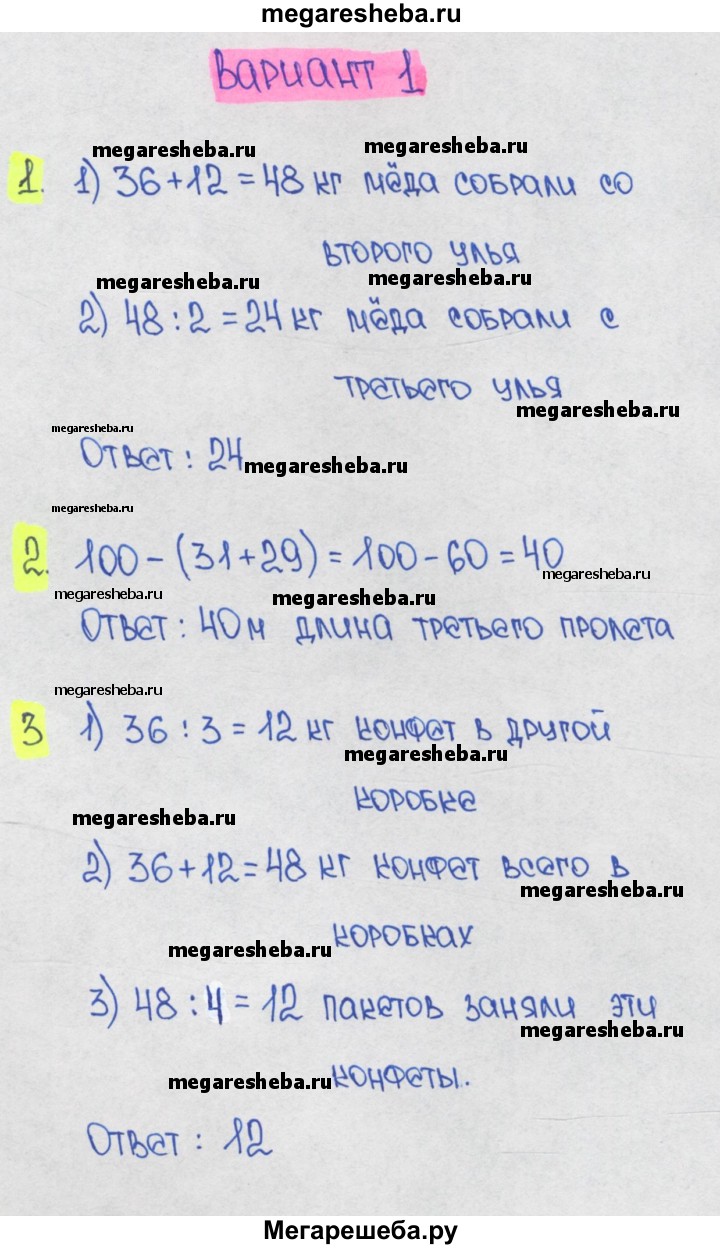 megaresheba.ru
Вариант 1
megaresheba.ru megaresheba.ru
1. 1) 36+12=48 кг мёда собрали со
второго улья
megaresheba.ru megaresheba.ru
2) 48:2=24 кг мёда собрали с
третьего улья
megaresheba.ru
megaresheba.ru
Ответ: 24
megaresheba.ru
megaresheba.ru
2. 100-(31+29)=100-60=40
megaresheba.ru
megaresheba.ru megaresheba.ru
Ответ: 40 м длина третьего пролета
megaresheba.ru
3 1) 36:3=12 кг конфет в другой
megaresheba.ru
коробке
megaresheba.ru
2) 36+12=48 кг конфет всего в
megaresheba.ru
коробках
megaresheba.ru
3) 48:4=12 пакетов заняли эти
megaresheba.ru
megaresheba.ru конфеты.
Ответ: 12
Мегарешеба.ру